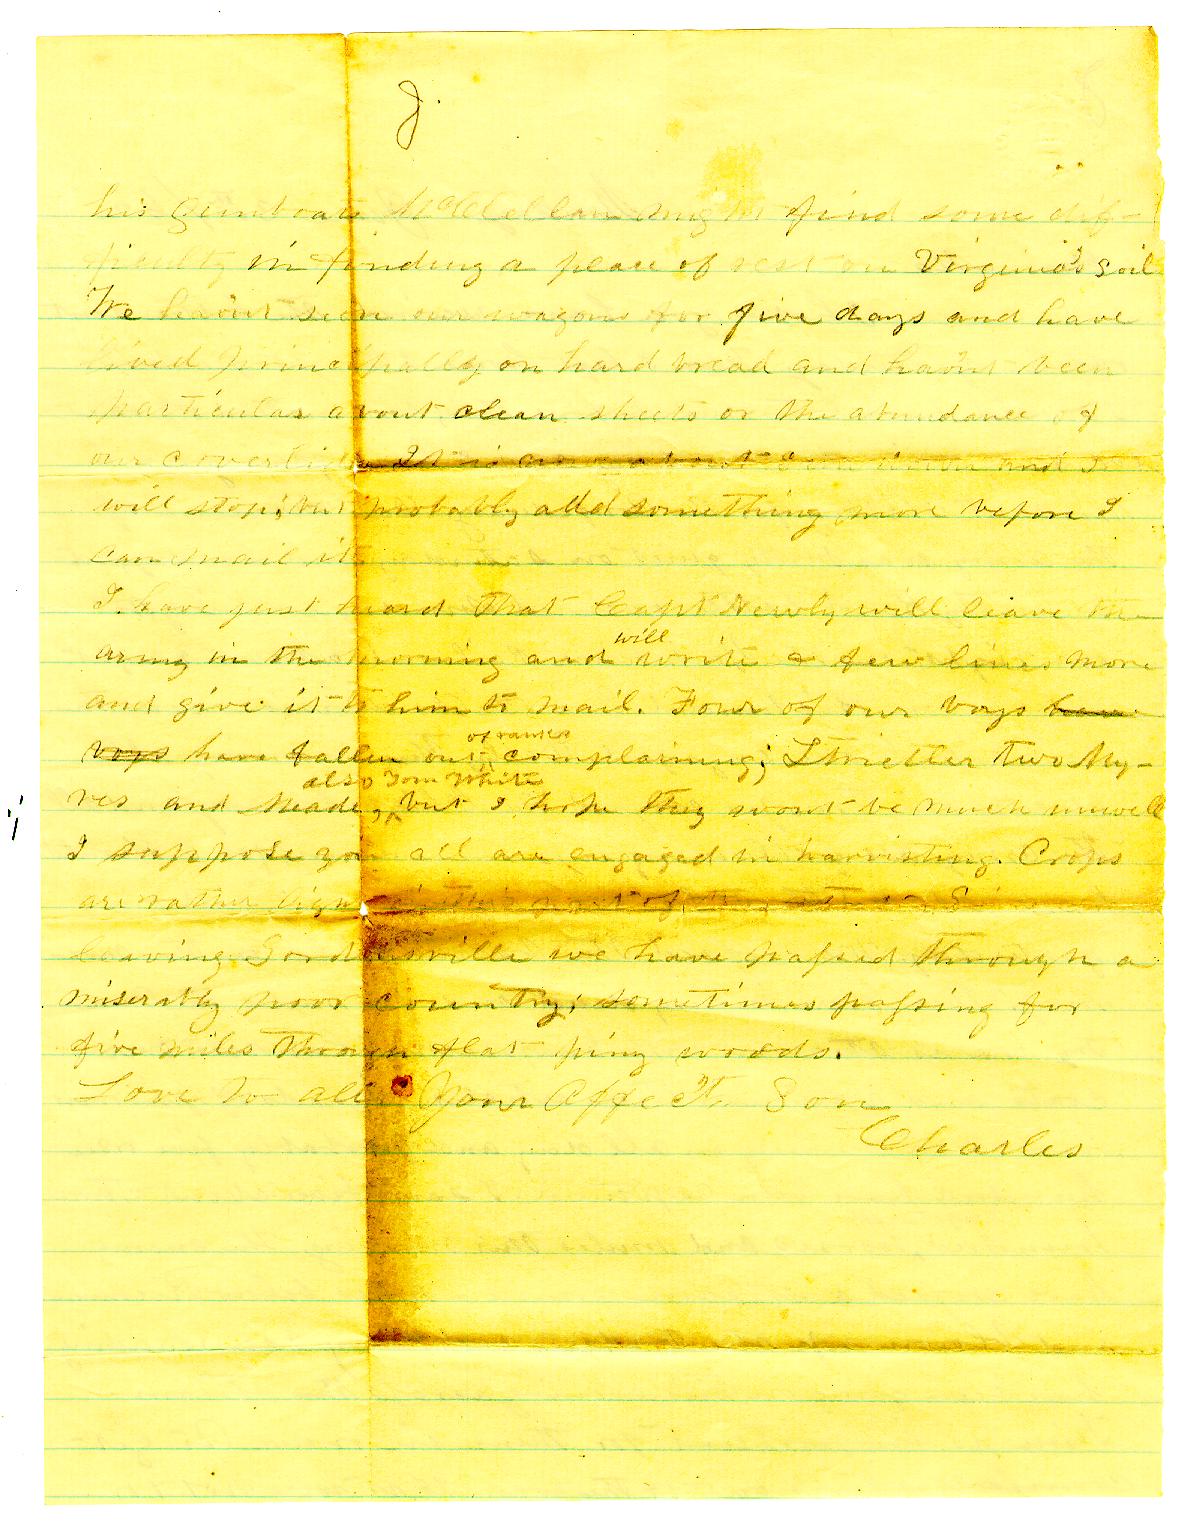 his gunboats McClellan might find some dif-
ficulty in finding a place of rest on Virginia's soil
We havnt seen our wagons for five days and have
lived principally on hard bread and havnt been
particular about clean sheets or the abundance of
our coverlids It is now about and I
will stop; but probably add something more before I
can mail it
I have just heard that Capt Newly will leave the
army in the morning and will write a few lines more
and give it to him to mail. Four of our boys have
boys have fallen out complaining; Stricller two My-
res and Meade, also Tom White but I hope they wont be much unwell
I suppose you all are engaged in harvisting. Crops
are rather light in this part of the state Since
leaving Gordonsville we have passed through a
miserably poor country; sometimes passing for
five miles through flat piny woods.
Love to all Your Affect. Son
Charles